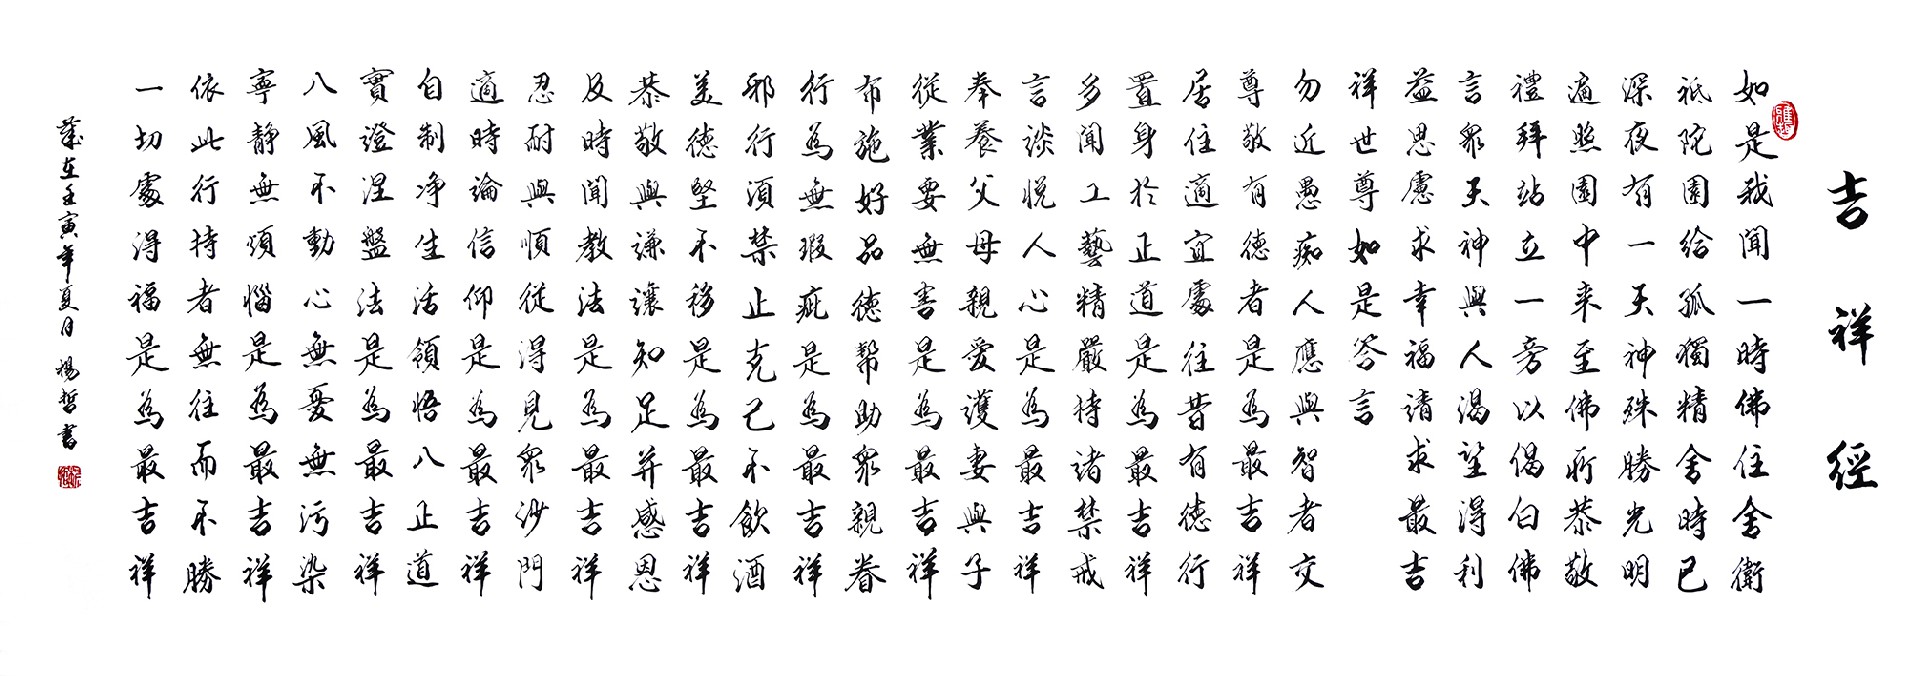 吉祥經
如是我聞一時佛住舍衛
祇陀園給孤獨精舍時已
深夜有一天神殊勝光明
遍照園中来至佛所恭敬
禮拜站立一旁以偈白佛
言眾天神與人渴望得利
益思慮求幸福請求最吉
祥世尊如是答言
勿近愚痴人應與智者交
尊敬有德者是為最吉祥
居住適宜處往昔有德行
置身於正道是為最吉祥
多聞工藝精嚴持諸禁戒
言談悅人心是為最吉祥
奉養父母親愛護妻與子
從業要無害是為最吉祥
布施好品德幫助眾親眷
行為無瑕疵是為最吉祥
邪行須禁止克己不飲酒
美德堅不移是為最吉祥
恭敬與謙讓知足并感恩
及時聞教法是為最吉祥
忍耐與順從得見眾沙門
適時論信仰是為最吉祥
自制净生活領悟八正道
實證涅盤法是為最吉祥
八風不動心無憂無污染
寧静無煩惱是為最吉祥
依此行持者無往而不勝
一切處得福是為最吉祥
歲在壬寅年夏月 楊哲書